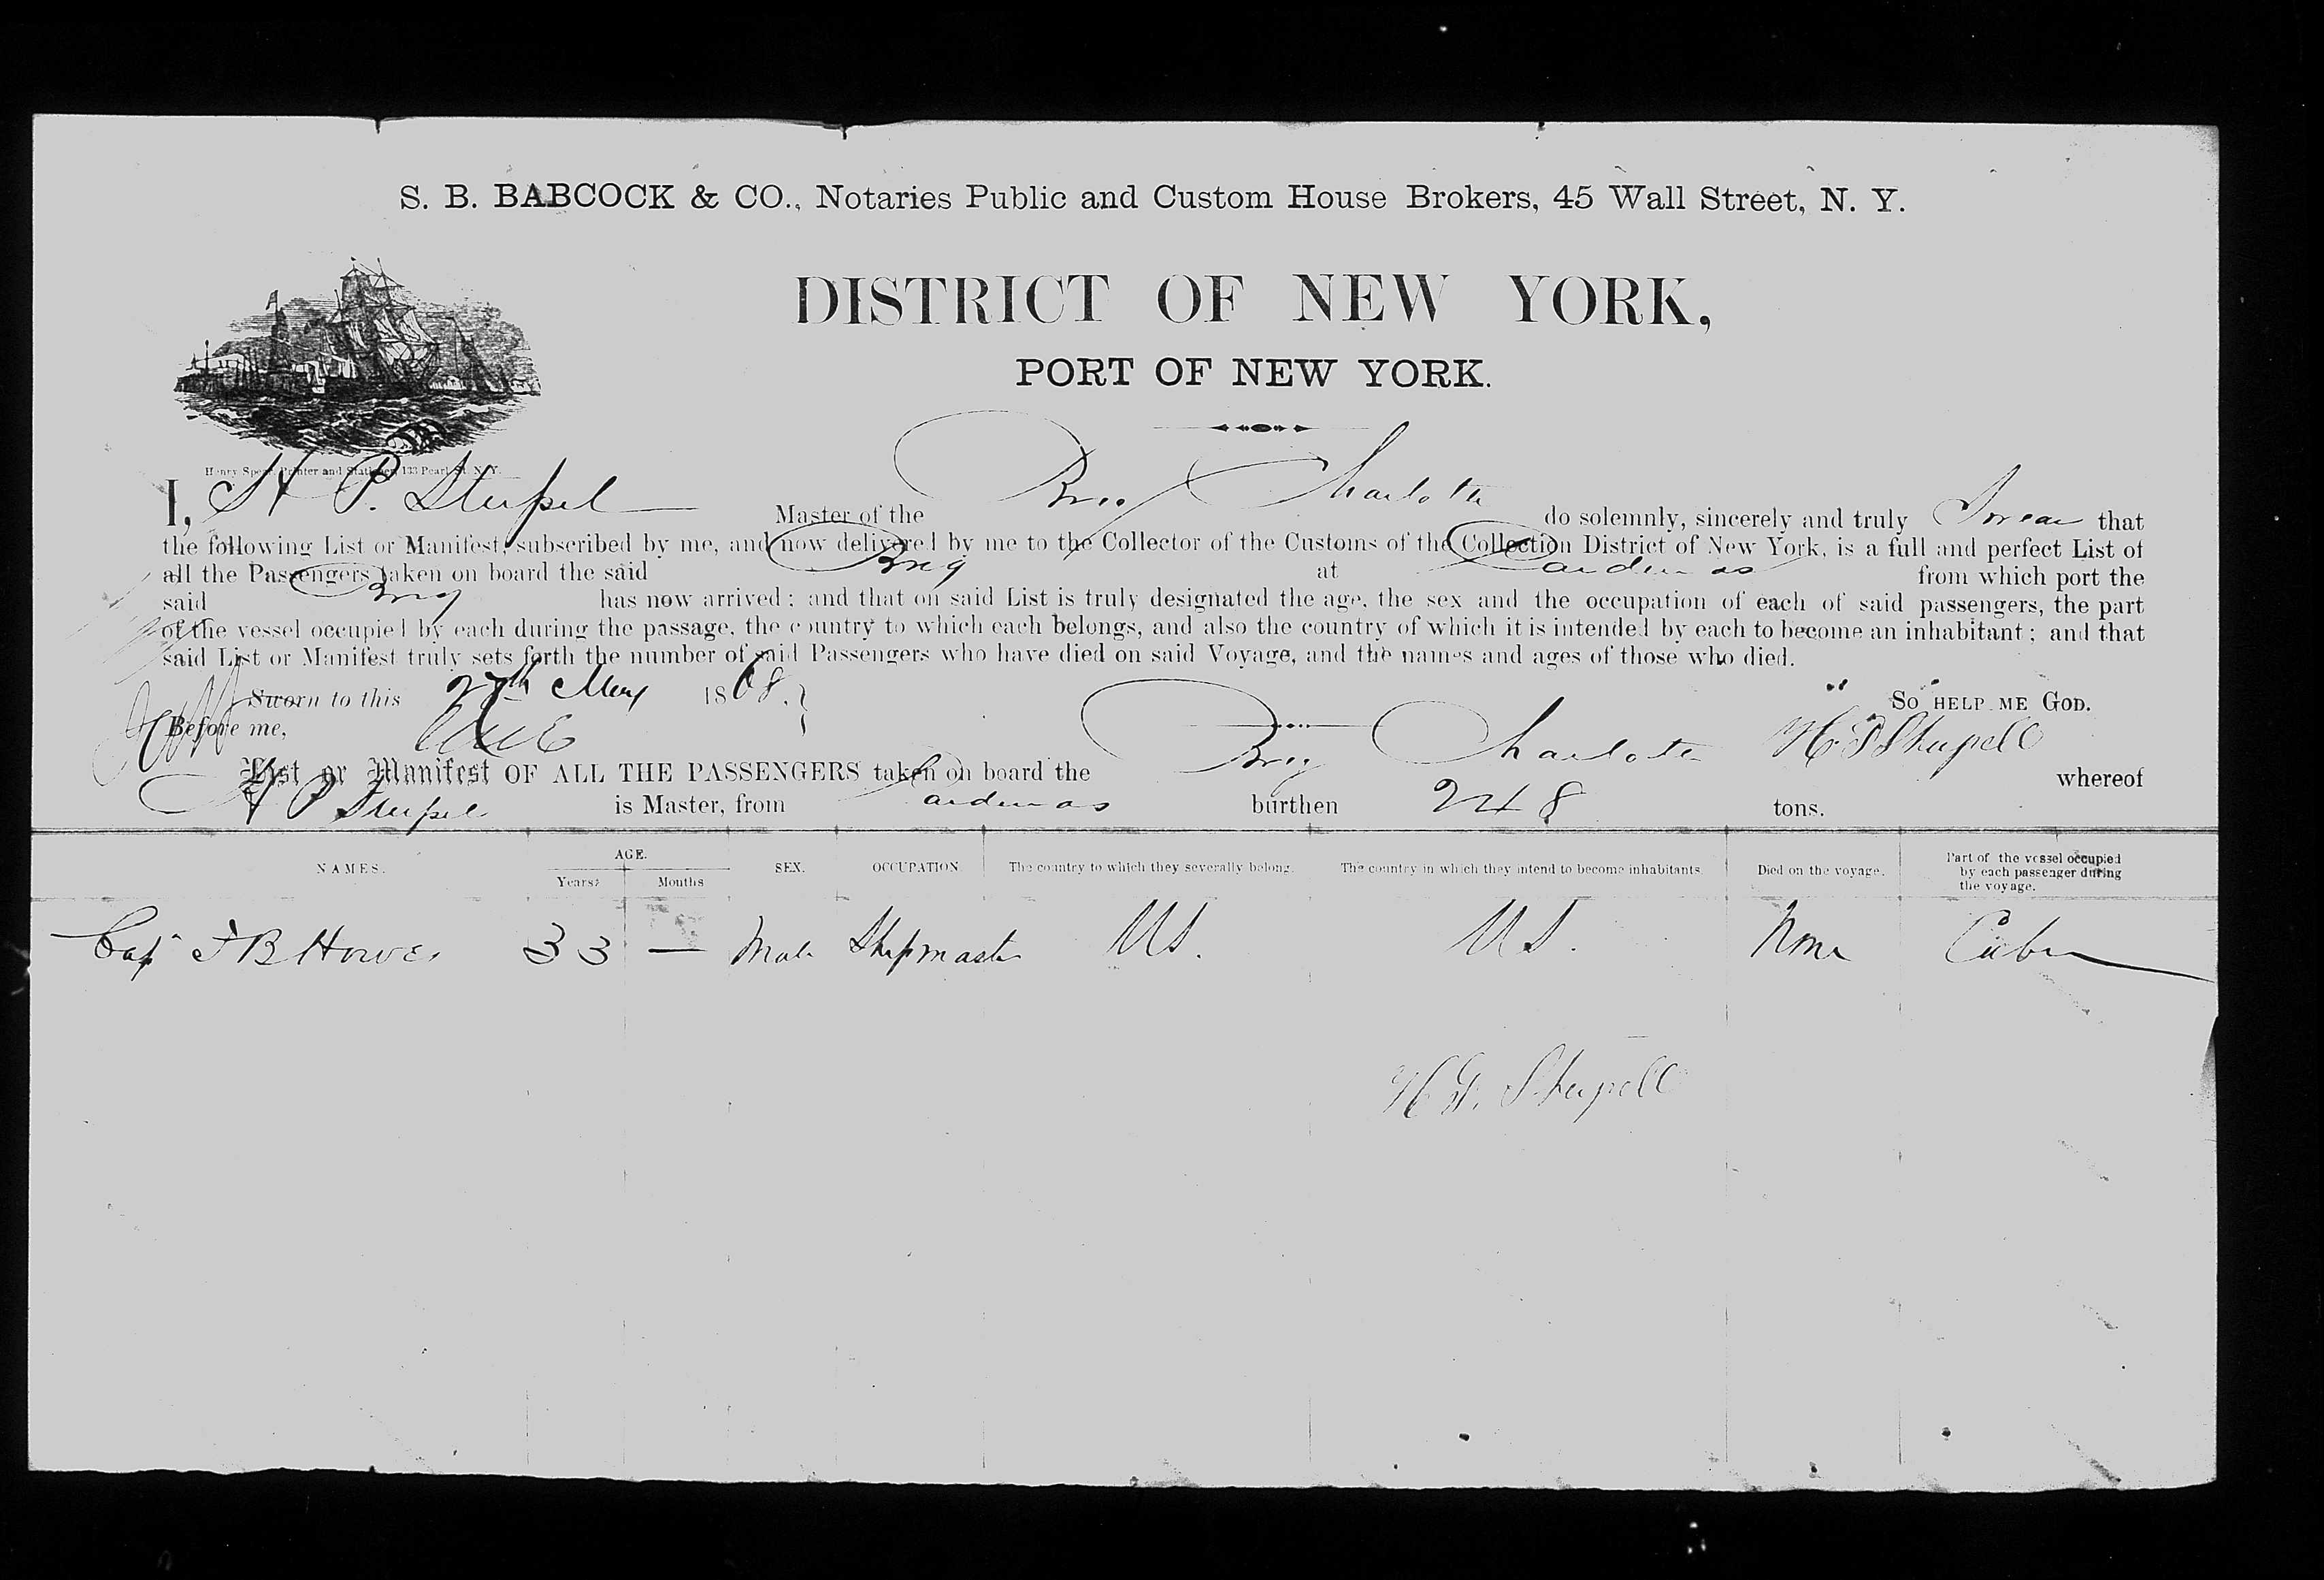 S. B. BABCOCK & CO., Notaries Public and Custom House Brokers, 45 Wall Street, N. Y.
DISTRICT OF NEW YORK,
PORT OF NEW YORK.
Henry Spear, Printer and Stationer, 133 Pearl St. N. Y.
I, H P. Stupel Master of the Brig Charlotte do solemnly, sincerely and truly Swear that
the following List or Manifest, subscribed by me, and now delivered by me to the Collector of the Customs of the Collection District of New York, is a full and perfect List of
all the Passengers taken on board the said Brig at Cardenas from which port the
said Brig has now arrived; and that on said List is truly designated the age, the sex and the occupation of each of said passengers, the part
of the vessel occupied by each during the passage, the country to which each belongs, and also the country of which it is intended by each to become an inhabitant; and that
said List or Manifest truly sets forth the number of said Passengers who have died on said Voyage, and the names and ages of those who died.
Sworn to this 27th May 1868. SO HELP ME GOD.
Before me, H. P Stupell
List or Manifest OF ALL THE PASSENGERS taken on board the Brig Charlotte whereof
H P Stupel is Master, from Cardenas burthen 248 tons.
NAMES. AGE. Years Months SEX. OCCUPATION The country to which they severally belong. The country in which they intend to become inhabitants. Died on the voyage. Part of the vessel occupied by each passenger during the voyage.
Cap J B Howes 33 — Male Shipmaster US. US. None Cabin
H P. Stupell